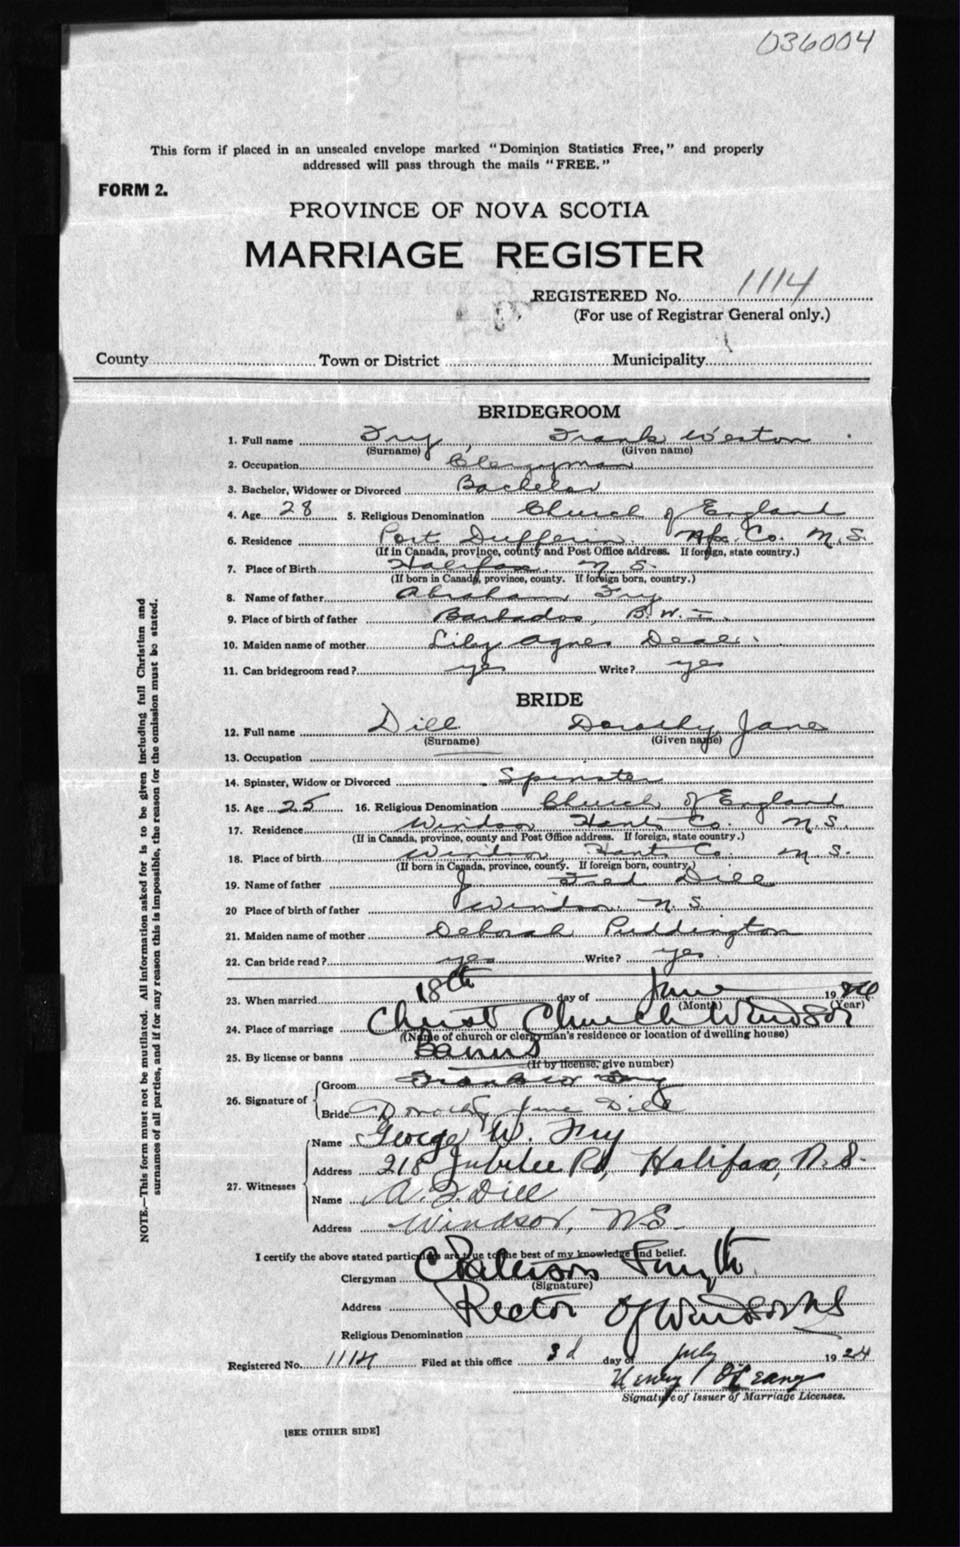 036004
This form if placed in an unsealed envelope marked "Dominion Statistics Free," and properly
addressed will pass through the mails "FREE."
FORM 2.
PROVINCE OF NOVA SCOTIA
MARRIAGE REGISTER
REGISTERED No. 1114
(For use of Registrar General only.)
County Town or District Municipality
BRIDEGROOM
1. Full name Fry, Frank Weston
(Surname) (Given name)
2. Occupation Clergyman
3. Bachelor, Widower or Divorced Bachelor
4. Age 28 5. Religious Denomination Church of England
6. Residence Port Dufferin Hfx. Co. N.S.
(If in Canada, province, county and Post Office address. If foreign, state country.)
7. Place of Birth Halifax N.S.
(If born in Canada, province, county. If foreign born, country.)
8. Name of father Abraham Fry
9. Place of birth of father Barbados, B.W.I.
10. Maiden name of mother Lily Agnes Deal
11. Can bridegroom read? yes Write? yes
BRIDE
12. Full name Dill Dorothy Jane
(Surname) (Given name)
13. Occupation
14. Spinster, Widow or Divorced Spinster
15. Age 25 16. Religious Denomination Church of England
17. Residence Windsor Hants Co. N.S.
(If in Canada, province, county and Post Office address. If foreign, state country.)
18. Place of birth Windsor Hants Co. N.S.
(If born in Canada, province, county. If foreign born, country.)
19. Name of father J Fred Dill
20 Place of birth of father Windsor N.S.
21. Maiden name of mother Deborah Puddington
22. Can bride read? yes Write? yes
23. When married 18th day of June 19
(Month) (Year)
24. Place of marriage Christ Church Windsor
(Name of church or clergyman's residence or location of dwelling house)
25. By license or banns Banns
(If by license, give number)
26. Signature of
Groom Fry
Bride Dorothy Jane Dill
27. Witnesses
Name George W. Fry
Address 218 Jubilee Rd, Halifax, N.S.
Name Dill
Address Windsor, N.S.
I certify the above stated particulars are true to the best of my knowledge and belief.
Clergyman
(Signature)
Address Rector of Windsor NS
Religious Denomination
Registered No. 1114 Filed at this office 3d day of July 1924
Henry
Signature of Issuer of Marriage Licenses.
[SEE OTHER SIDE]
NOTE.—This form must not be mutilated. All information asked for is to be given including full Christian and
surnames of all parties, and if for any reason this is impossible, the reason for the omission must be stated.